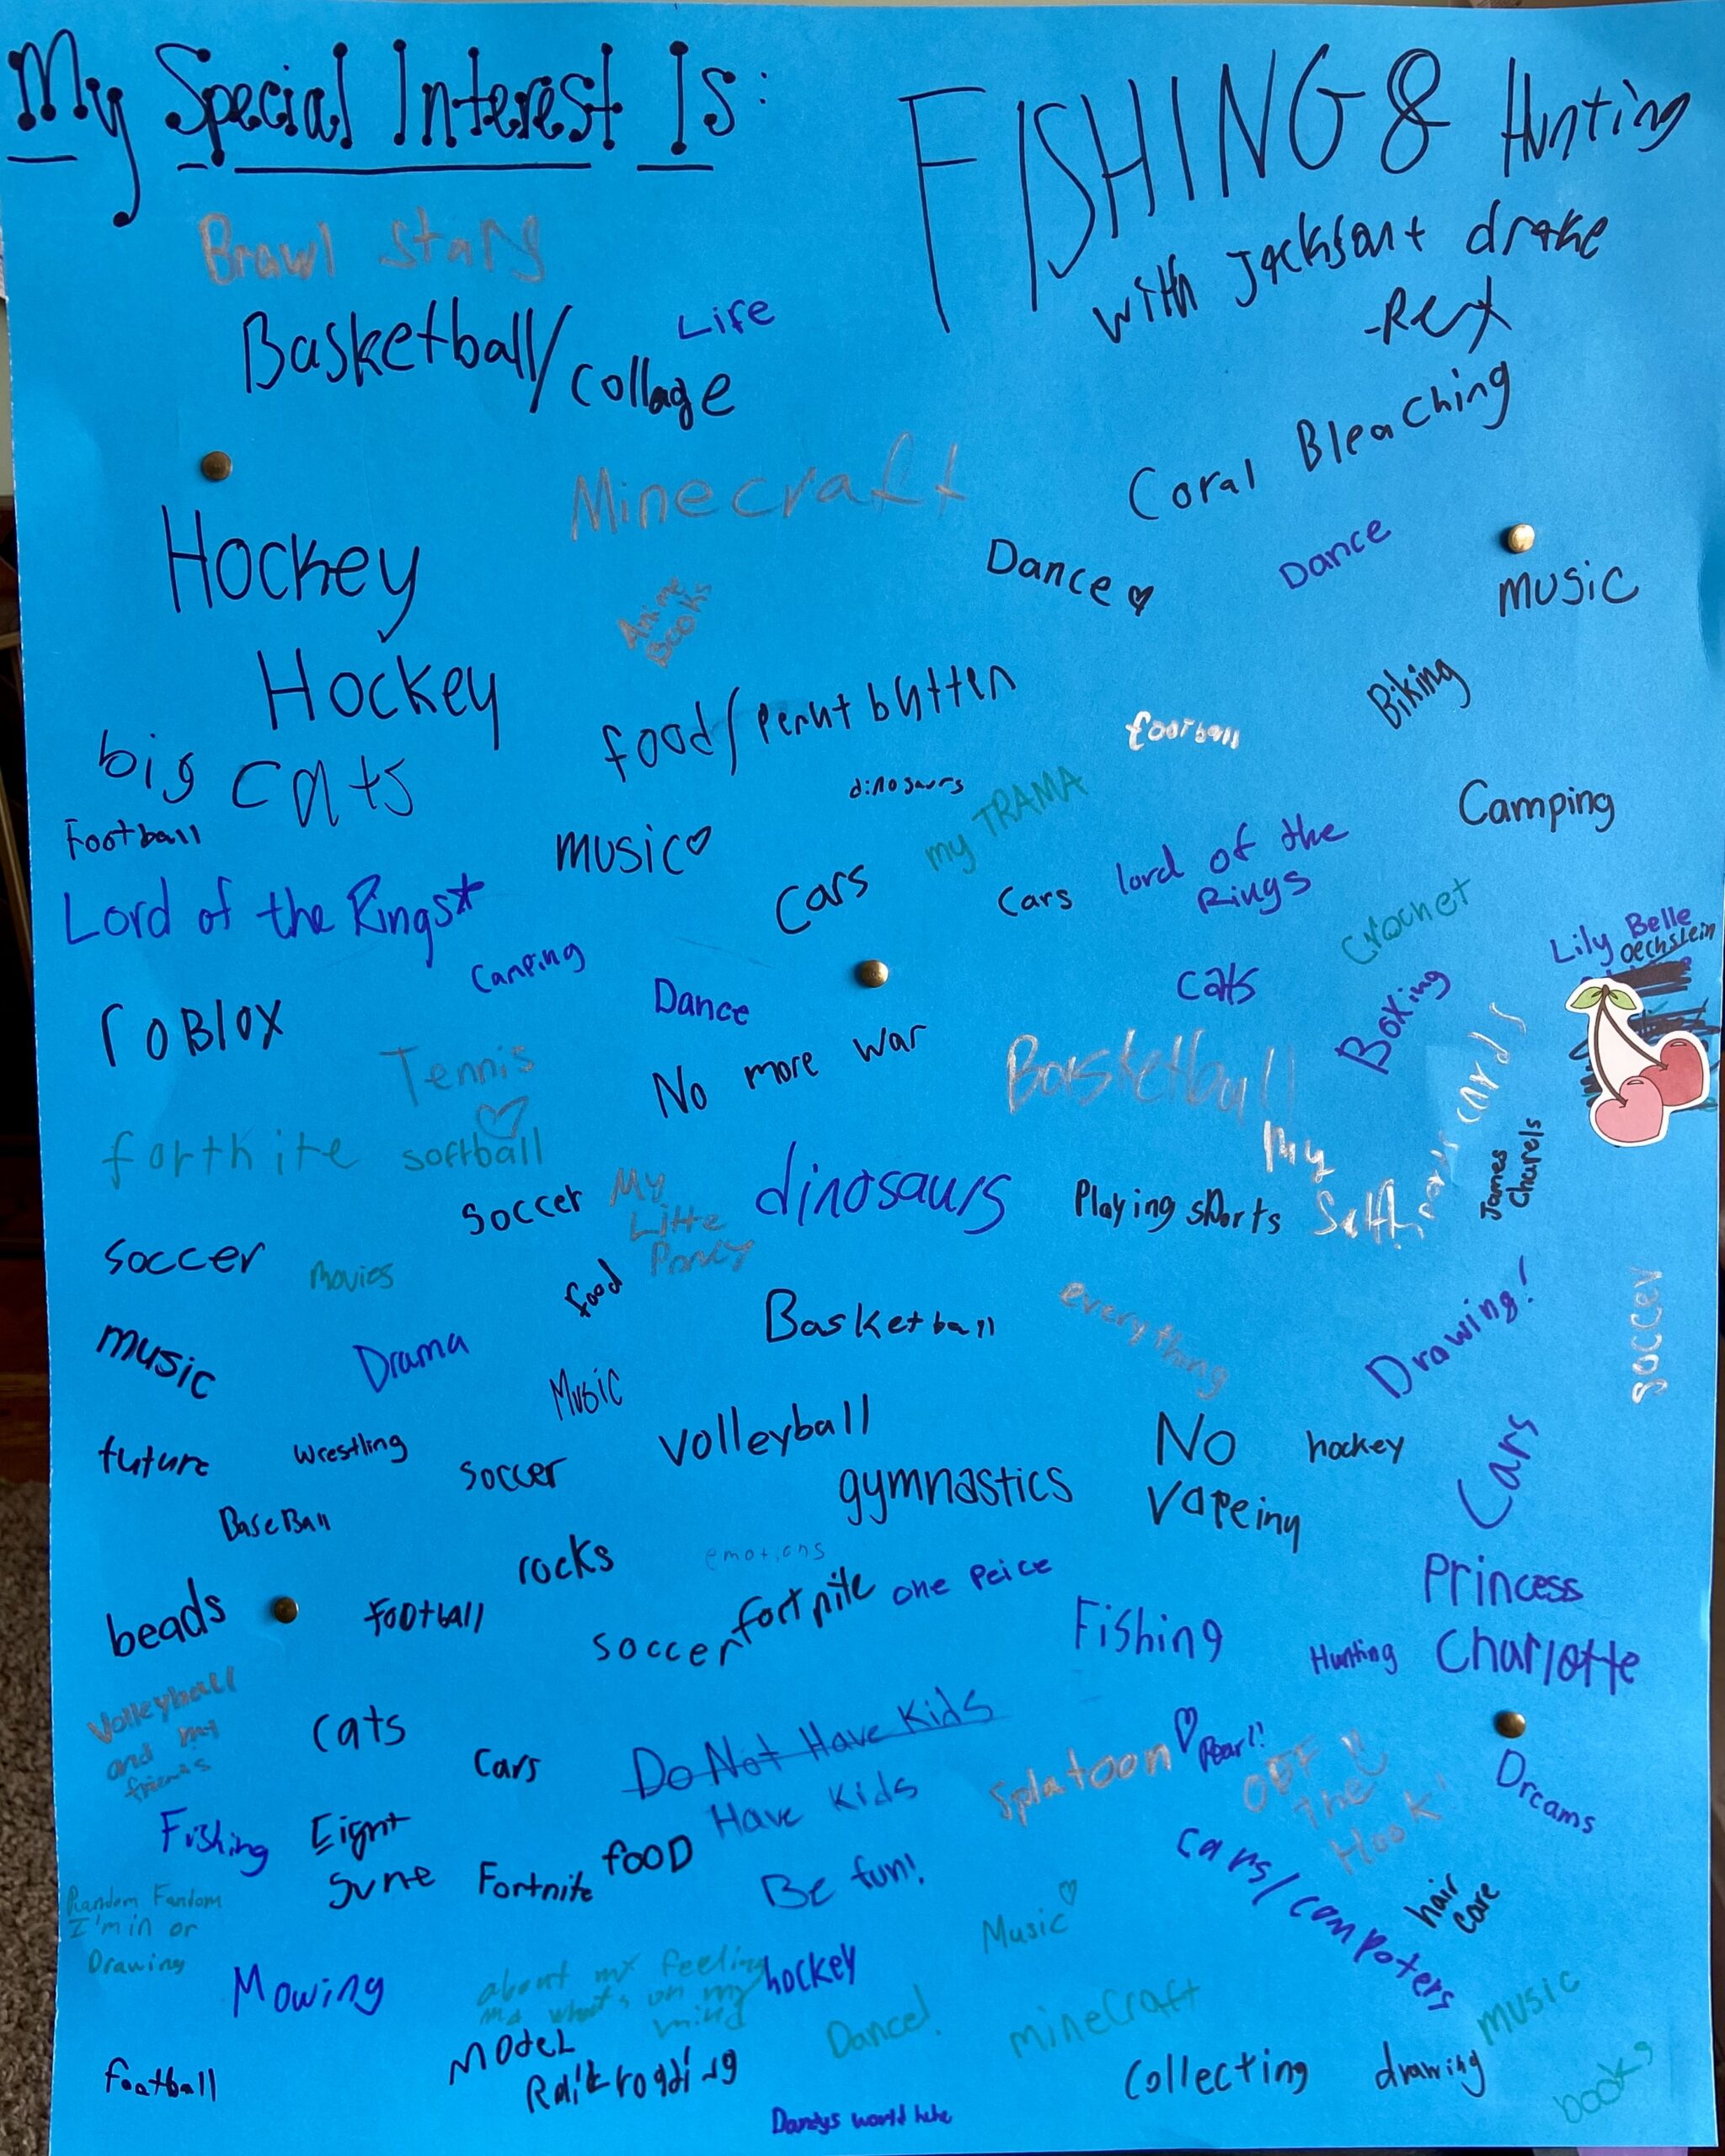 My Special Interest Is:
FISHING & Hunting
with Jackson + drake
-Rex
Brawl Stars
Life
Basketball/collage
Coral Bleaching
Minecraft
Hockey
Dance
Dance
music
Anime
Books
Hockey
Biking
food/penut butter
football
big cats
dinosaurs
my TRAMA
Camping
Football
music
Cars
Cars
lord of the
Rings
Lord of the Rings*
crochet
Lily Belle
Oechslein
Camping
cats
Dance
Boxing
roBlox
No more war
Tennis
Basketball
forthite
softball
My
cards
James
Charels
soccer
My
Litte
Poney
dinosaurs
Playing sports
soccer
movies
food
everything
Drawing!
soccer
Basketball
music
Drama
Music
volleyball
No
vapeing
hockey
Cars
future
wrestling
soccer
gymnastics
BaseBall
rocks
emotions
fortnite
one peice
Princess
Charlotte
beads
football
soccer
Fishing
Hunting
Volleyball
and my
friends
cats
Cars
Do Not Have Kids
Have Kids
Splatoon
Pearl!
OFF
The
Hook!
Dreams
Fishing
Eight
June
Fortnite
fooD
Be fun!
cars/compoters
hair
care
Random Fandom
I'm in or
Drawing
Music
Mowing
about my feeling
what's on my
mind
hockey
Dance!
minecraft
music
football
Model
Railroading
Collecting
drawing
books
Dandys world hehe